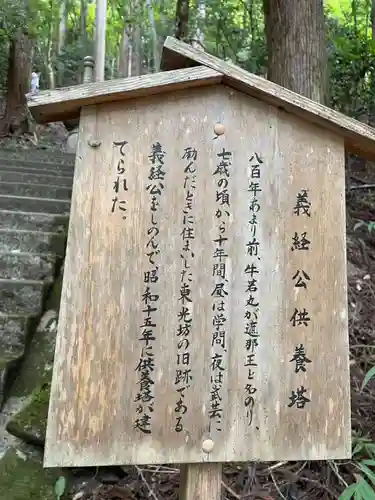 義経公供養塔
八百年あまり前、牛若丸が遮那王と名のり、
七歳の頃から十年間、昼は学問、夜は武芸に
励んだときに住まいした東光坊の旧跡である
義経公をしのんで、昭和十五年に供養塔が建
てられた。